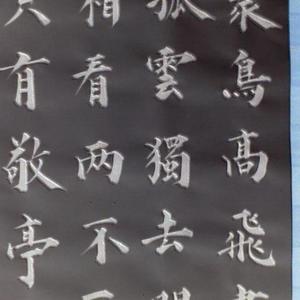 衆鳥髙飛
孤雲獨去
相看两不
只有敬亭